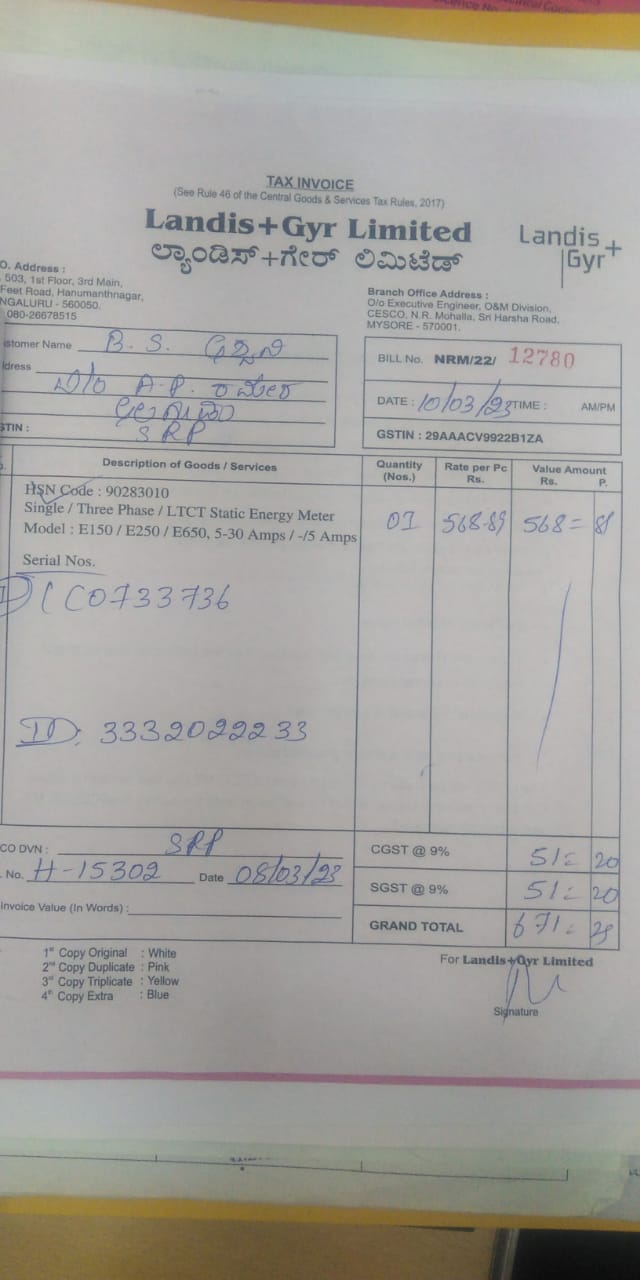 TAX INVOICE
(See Rule 46 of the Central Goods & Services Tax Rules, 2017)
Landis+Gyr Limited
ಲ್ಯಾಂಡಿಸ್+ಗೇರ್ ಲಿಮಿಟೆಡ್
Landis+
Gyr
O. Address :
503, 1st Floor, 3rd Main,
Feet Road, Hanumanthnagar,
NGALURU - 560050.
080-26678515
Branch Office Address :
O/o Executive Engineer, O&M Division,
CESCO, N.R. Mohalla, Sri Harsha Road,
MYSORE - 570001.
stomer Name B. S.
ddress A.P.
STIN : SRP
BILL No. NRM/22/ 12780
DATE : 10/03/23 TIME : AM/PM
GSTIN : 29AAACV9922B1ZA
Description of Goods / Services Quantity (Nos.) Rate per Pc Rs. Value Amount Rs. P.
HSN Code : 90283010
Single / Three Phase / LTCT Static Energy Meter 01 568-89 568=
Model : E150 / E250 / E650, 5-30 Amps / -/5 Amps
Serial Nos.
CC0733736
ID: 3332022233
CO DVN : SRP
. No. H-15302 Date 08/03/23
Invoice Value (In Words) :
CGST @ 9% 51= 20
SGST @ 9% 51= 20
GRAND TOTAL 671=
1st Copy Original : White
2nd Copy Duplicate : Pink
3rd Copy Triplicate : Yellow
4th Copy Extra : Blue
For Landis+Gyr Limited
Signature